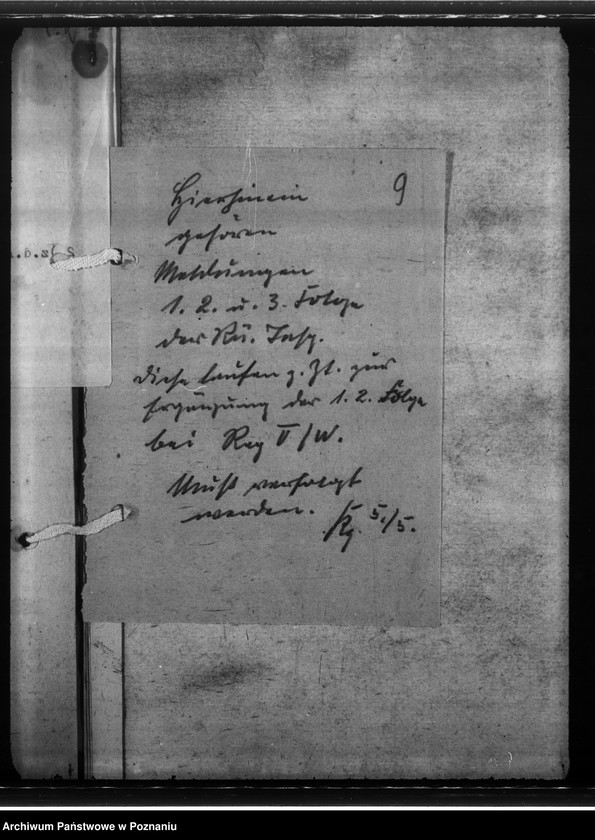 9
Hierhinein
gehören
Meldungen
1. 2. u. 3. Folge
der Rü. Insp.
diese laufen z. Zt. zur
Ergänzung der 1. 2. Folge
bei Reg V/W.
Muß verfolgt
werden. 5./5.
Archiwum Państwowe w Poznaniu